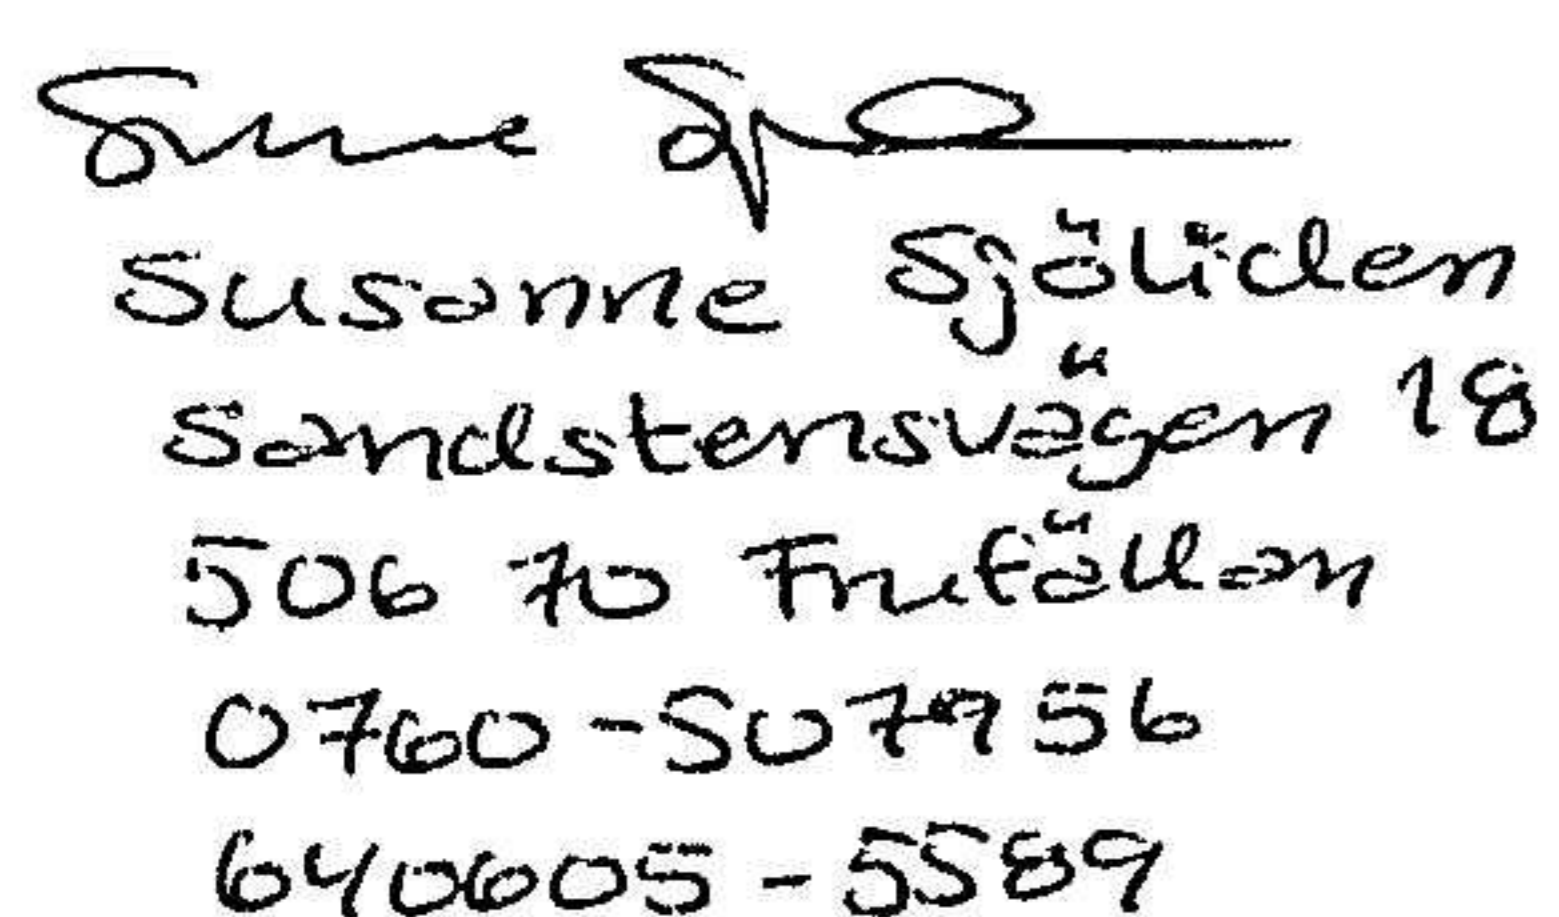 Susanne Sjöliden
Sandstensvägen 18
506 70 Frufällan
0760-507956
640605-5589